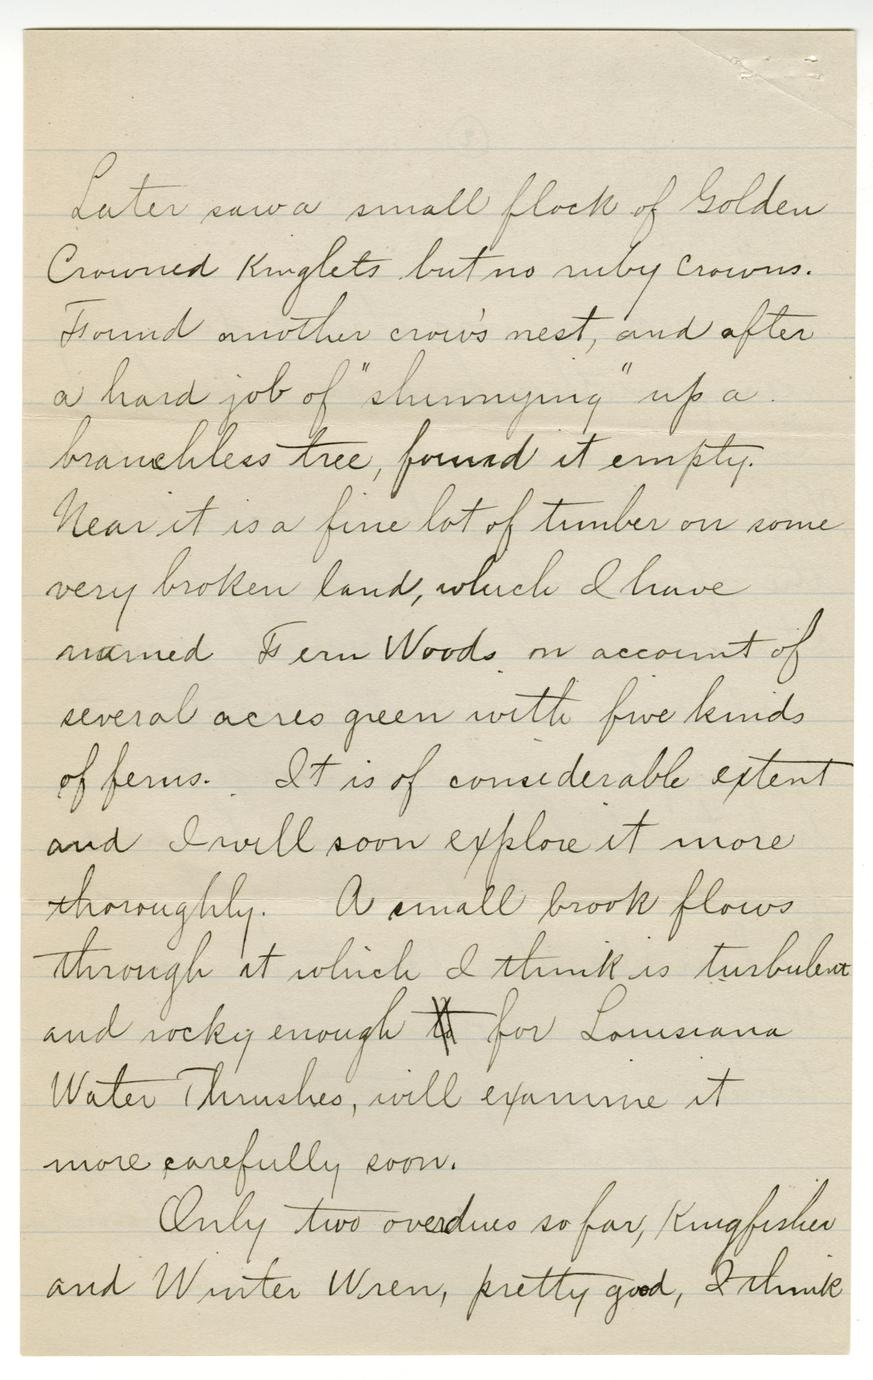 Later saw a small flock of Golden
Crowned Kinglets but no ruby crowns.
Found another crow's nest, and after
a hard job of "shinnying" up a
branchless tree, found it empty.
Near it is a fine lot of timber on some
very broken land, which I have
named Fern Woods on account of
several acres green with five kinds
of ferns. It is of considerable extent
and I will soon explore it more
thoroughly. A small brook flows
through it which I think is turbulent
and rocky enough to for Louisiana
Water Thrushes, will examine it
more carefully soon.
Only two overdues so far, Kingfisher
and Winter Wren, pretty good, I think